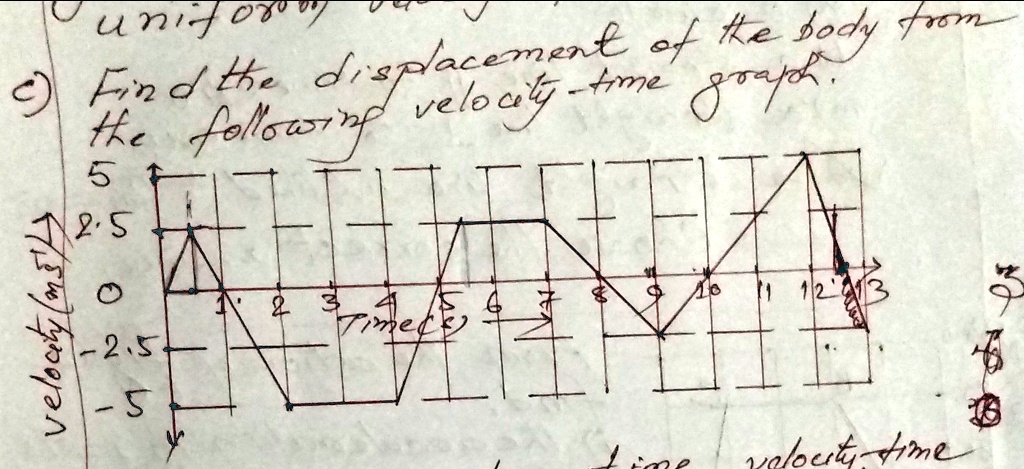 uniform
c) Find the displacement of the body from
the following velocity-time graph.
5
2.5
0
-2.5
-5
velocity (ms⁻¹)
1 2 3 4 5 6 7 8 9 10 11 12 13
Time(s)
time velocity-time